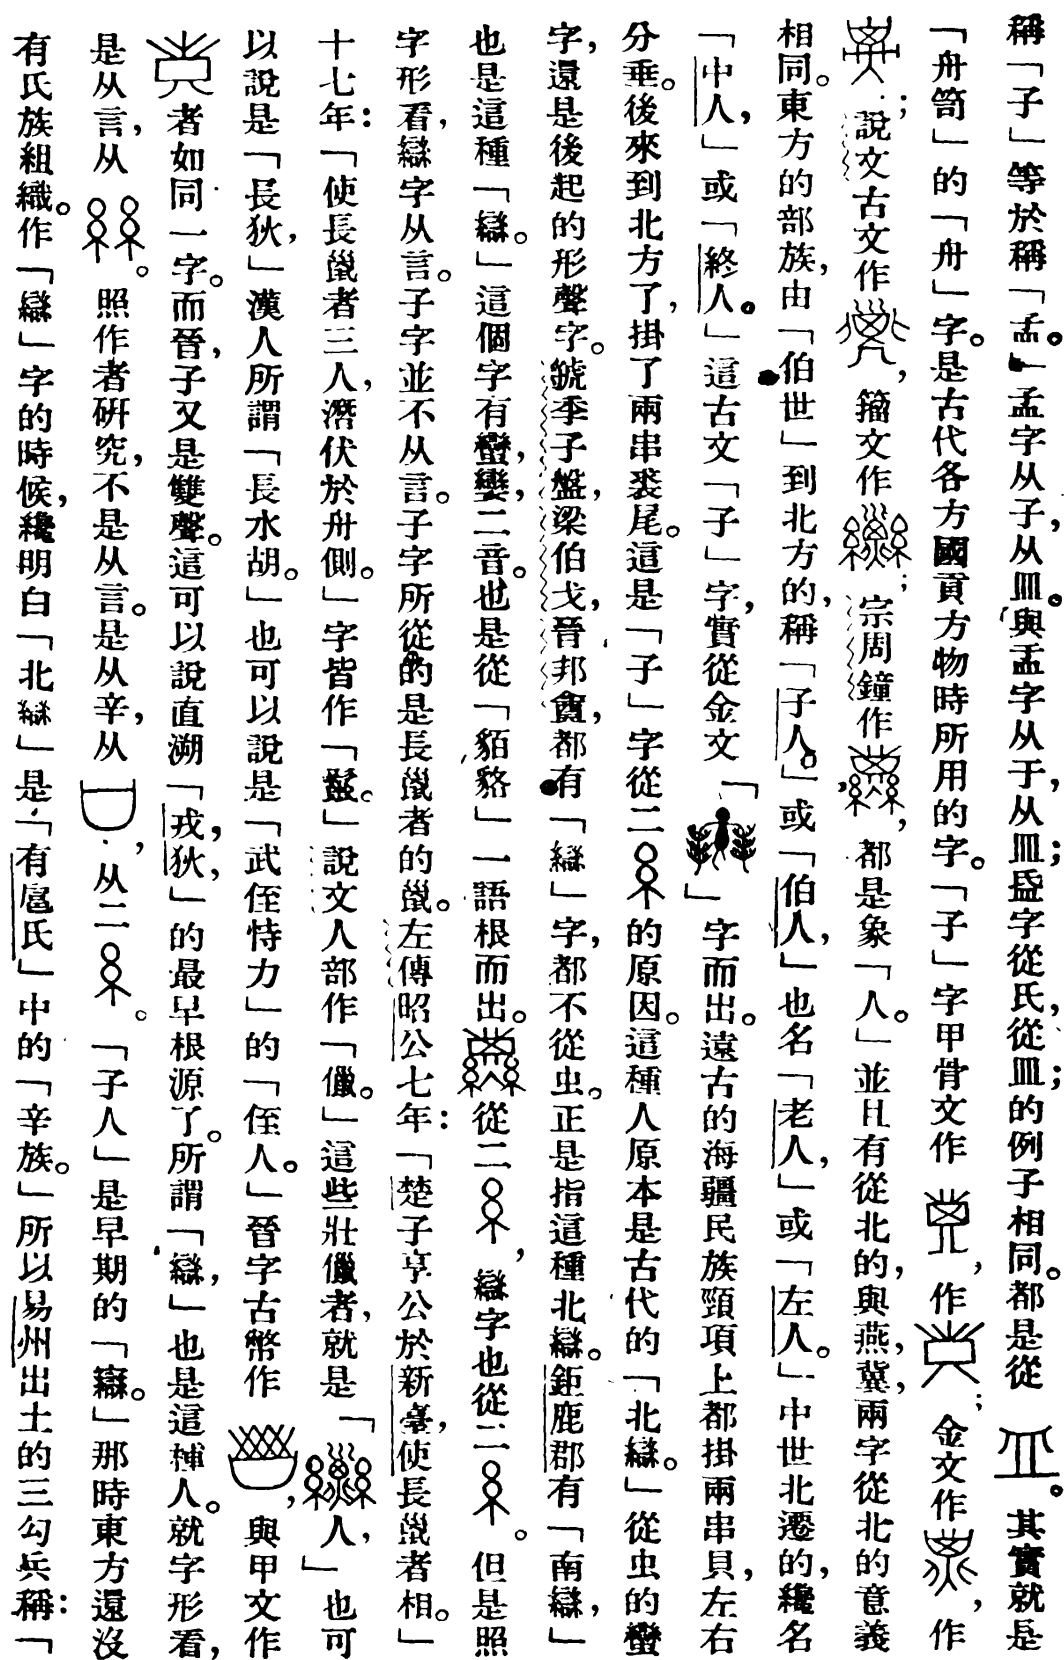 稱「子」等於稱「孟。」孟字从子，从皿。與盂字从于，从皿；盌字從氏，從皿；的例子相同。都是從。其實就是
「舟笥」的「舟」字。是古代各方國貢方物時所用的字。「子」字甲骨文作，作；金文作，作
；說文古文作，籀文作；宗周鐘作，都是象「人。」並且有從北的，與燕，冀，兩字從北的意義
相同。東方的部族，由「伯世」到北方的，稱「子人。」或「伯人，」也名「老人，」或「左人。」中世北遷的，纔名
「中人，」或「終人。」這古文「子」字，實從金文「」字而出。遠古的海疆民族頸項上都掛兩串貝，左右
分垂。後來到北方了，掛了兩串裘尾。這是「子」字從二的原因。這種人原本是古代的「北䜌。」從虫的蠻
字，還是後起的形聲字。虢季子盤，梁伯戈，晉邦𥂴，都有「䜌」字，都不從虫。正是指這種北䜌。鉅鹿郡有「南䜌，」
也是這種「䜌。」這個字有蠻，孌二音。也是從「貊貉」一語根而出。從二，䜌字也從二。但是照
字形看，䜌字从言。子字並不从言。子字所從的是長鬣者的鬣。左傳昭公七年：「楚子享公於新臺，使長鬣者相。」
十七年：「使長鬣者三人，潛伏於舟側。」字皆作「鬣。」說文人部作「儠。」這些壯儠者，就是「人，」也可
以說是「長狄，」漢人所謂「長水胡。」也可以說是「武侄恃力」的「侄人。」晉字古幣作，與甲文作
者如同一字。而晉，子又是雙聲。這可以說直溯「戎，狄，」的最早根源了。所謂「䜌，」也是這種人。就字形看，
是从言，从。照作者研究，不是从言。是从辛，从，从二。「子人」是早期的「䜌。」那時東方還沒
有氏族組織。作「䜌」字的時候，纔明白「北䜌」是「有扈氏」中的「辛族。」所以易州出土的三勾兵稱：「